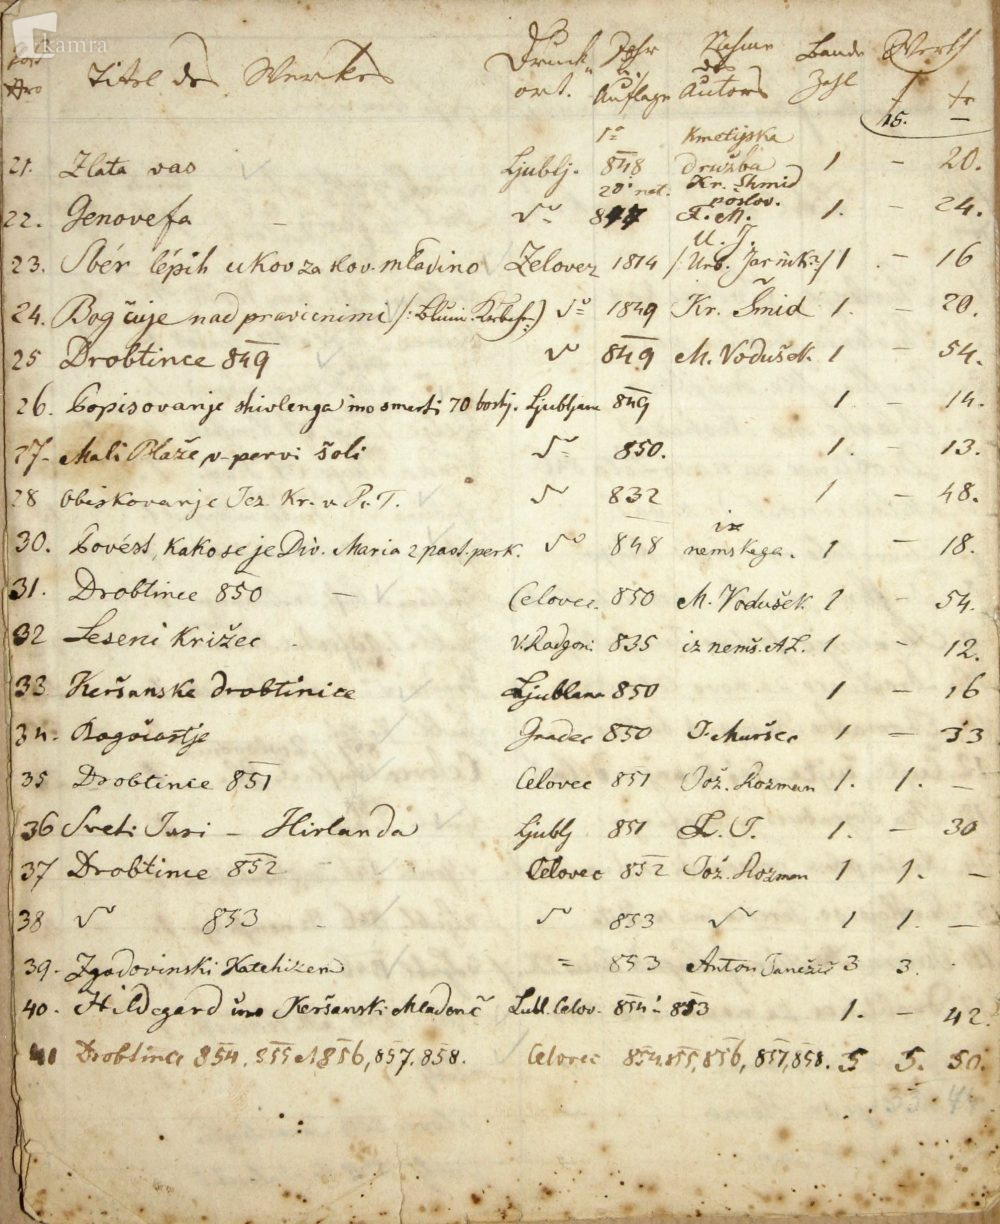 kamra
Titel des Werkes Druck- ort. Jahr u. Auflage Nahme des Autors Bande Zahl Werth
f. kr
15. —
21. Zlata vas Ljublj. 848 Kmetijska družba 1 — 20.
22. Genovefa — do 847 Kr. Šhmid poslov. F. M. 1. — 24.
23. Sbér lépih ukov za slov. mladino Zelovez 1814 U. J. /: Urb. Jarnik :/ 1 — 16
24. Bog čuje nad pravicnimi do 1849 Kr. Šmid 1. — 20.
25 Drobtince 849 do 849 M. Vodušek 1 — 54.
26. Popisovanje shivlenga ino smerti 70 bostj. Ljubljana 849 1. — 14.
27. Mali Blaže v pervi šoli do 850. 1. — 13.
28 obiskovanje Jez. Kr. v P. T. do 832 1 — 48.
30. Povést, kako se je Div. Maria 2 past. perk. do 848 iz nemskega. 1 — 18.
31. Drobtince 850 — Celovec. 850 M. Vodušek 1 — 54.
32 Leseni križec V. Radgoni 835 iz nemš. A L. 1 — 12.
33 Keršanske drobtinice Ljublana 850 1 — 16
34. Bogočastje Gradec 850 J. Muršec 1 — 33
35 Drobtince 851 Celovec 851 Jož. Rozman 1. 1. —
36 Sveti Juri — Hirlanda Ljublj 851 1. — 30
37 Drobtince 852 — Celovec 852 Jož. Rozman 1 1. —
38 do 853 do 853 do 1 1. —
39. Zgodovinski Katehizem = 853 Anton Janežič 3 3.
40. Hildegard ino Keršanski Mladenč Lubl. Celov. 854 853 1. — 42.
41 Drobtince 854. 855 et 856, 857. 858. Celovec 854. 855, 856, 857, 858. 5 5. 50.